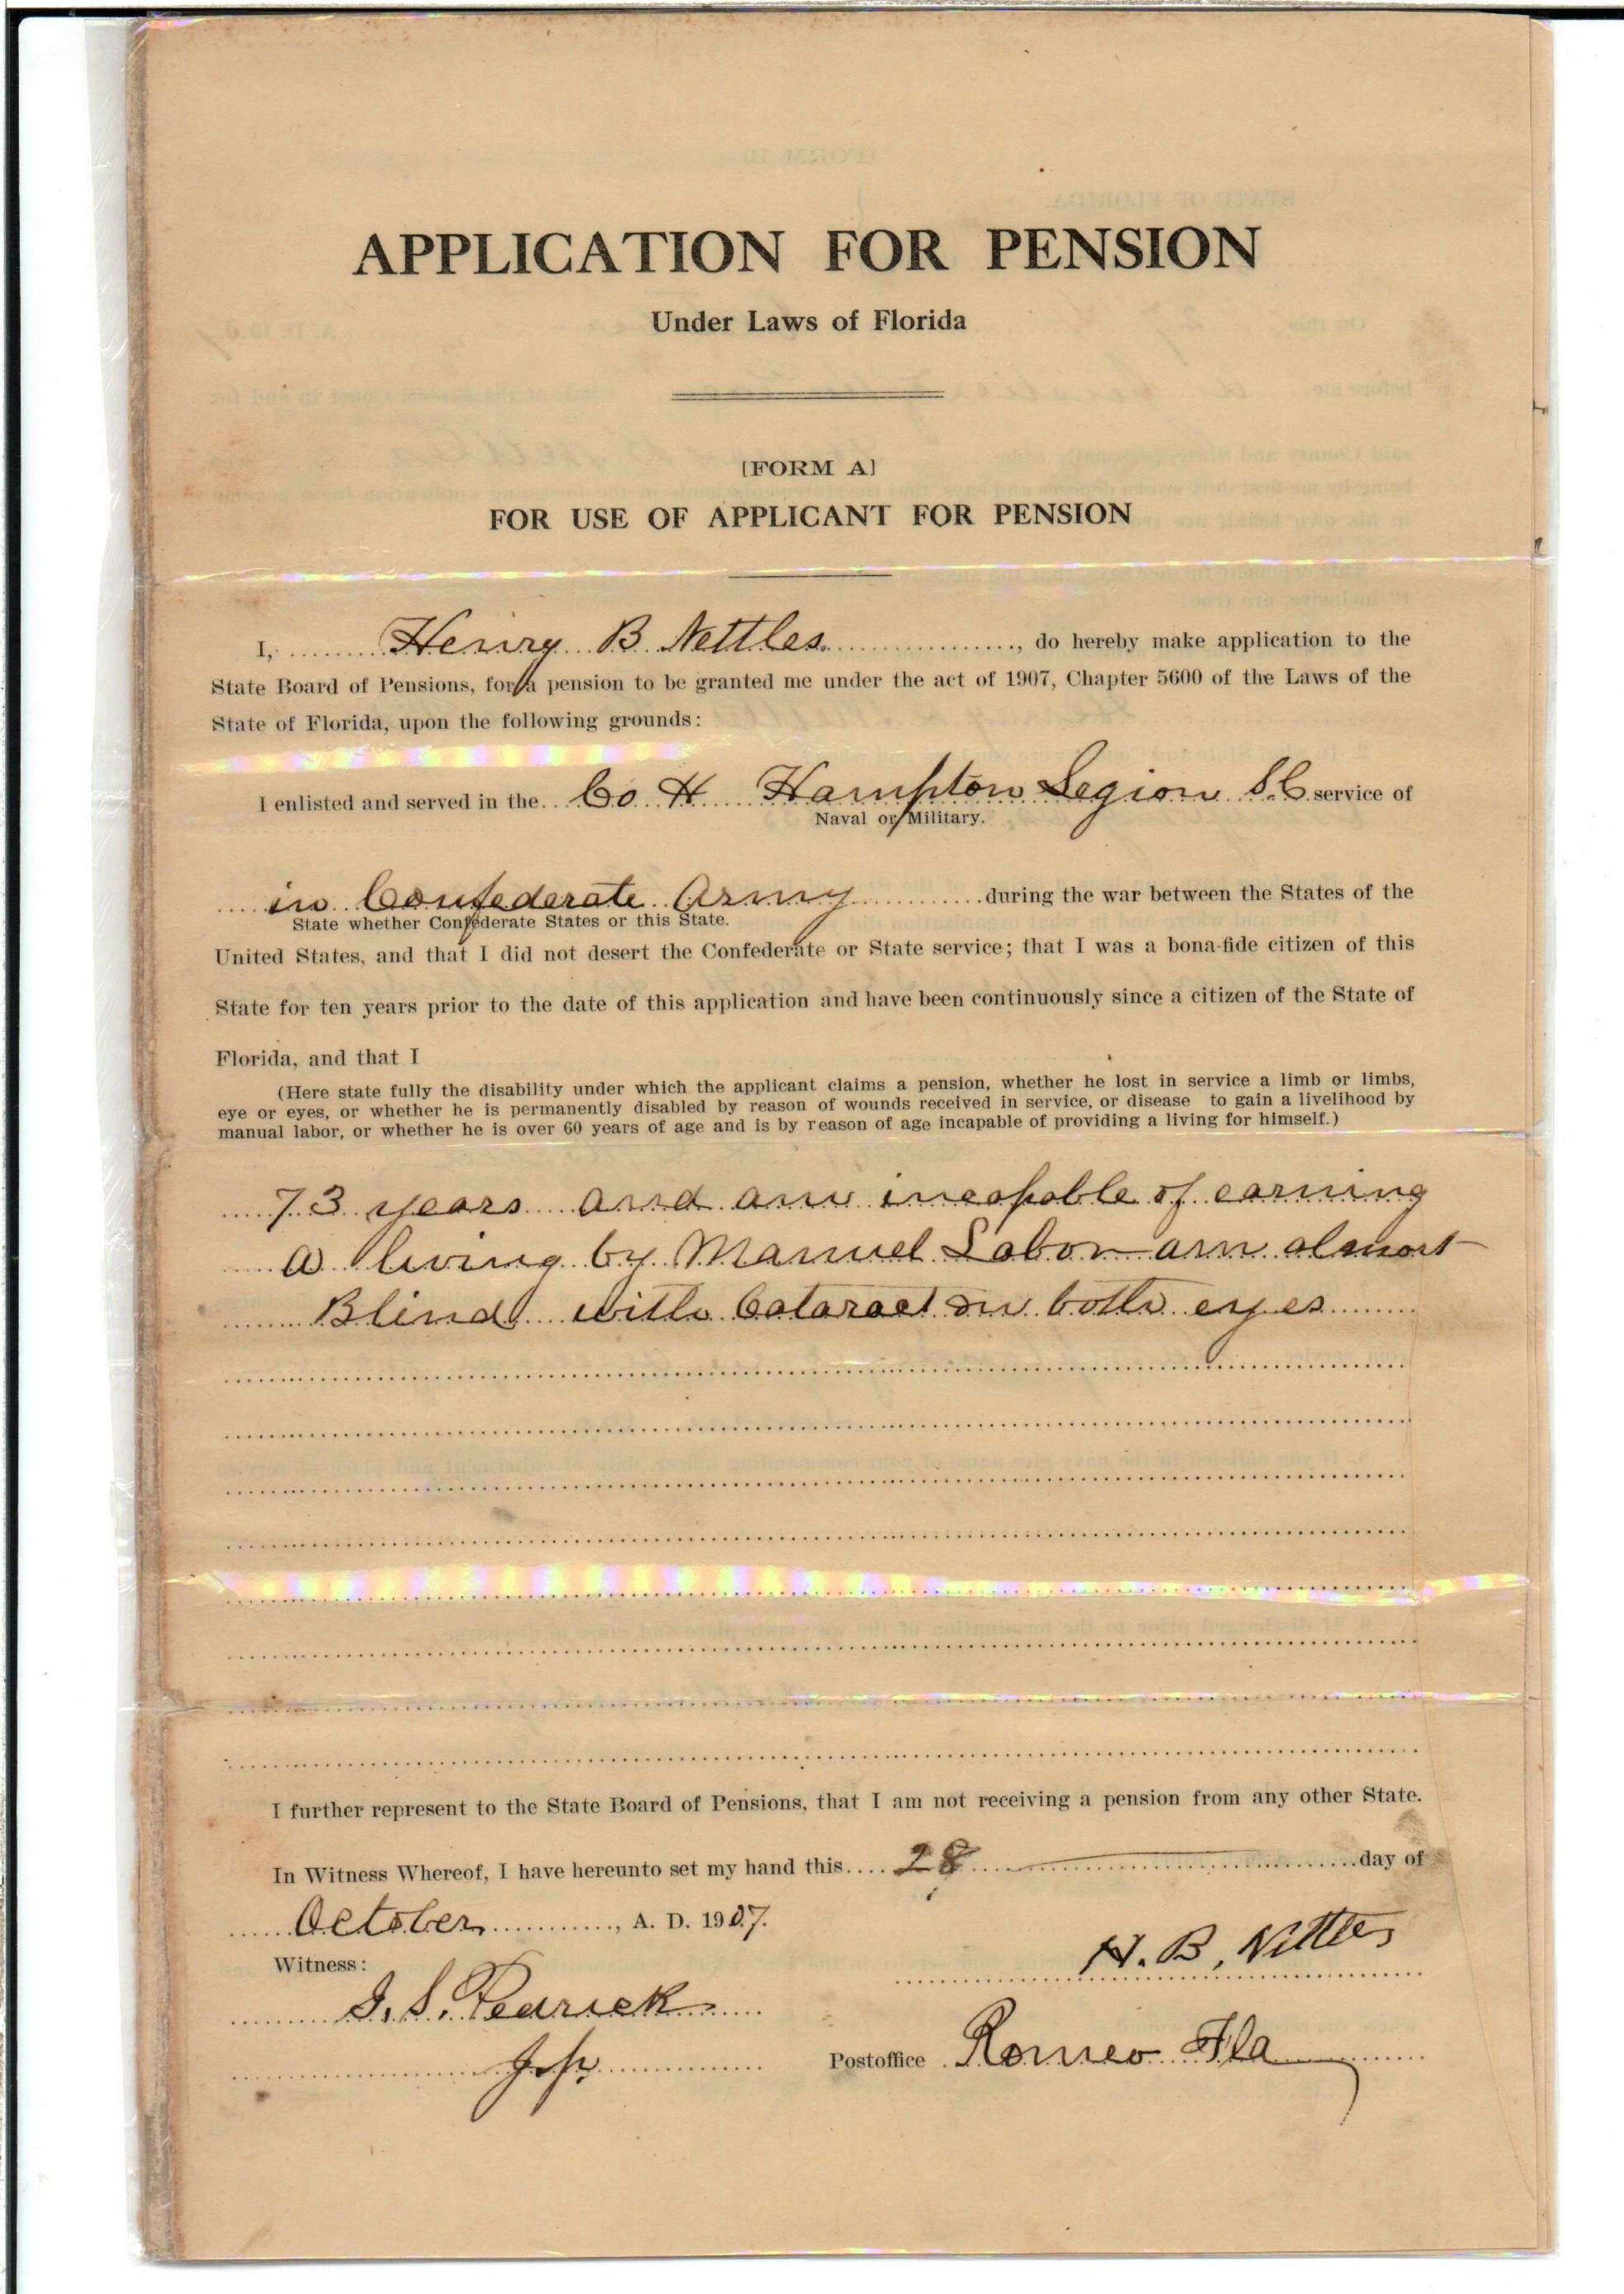 APPLICATION FOR PENSION
Under Laws of Florida
[FORM A]
FOR USE OF APPLICANT FOR PENSION
I, Henry B Nettles, do hereby make application to the
State Board of Pensions, for a pension to be granted me under the act of 1907, Chapter 5600 of the Laws of the
State of Florida, upon the following grounds:
I enlisted and served in the Co H Hampton Legion S.C service of
Naval or Military.
in Confederate Army during the war between the States of the
State whether Confederate States or this State.
United States, and that I did not desert the Confederate or State service; that I was a bona-fide citizen of this
State for ten years prior to the date of this application and have been continuously since a citizen of the State of
Florida, and that I
(Here state fully the disability under which the applicant claims a pension, whether he lost in service a limb or limbs,
eye or eyes, or whether he is permanently disabled by reason of wounds received in service, or disease to gain a livelihood by
manual labor, or whether he is over 60 years of age and is by reason of age incapable of providing a living for himself.)
73 years and am incapable of earning
a living by Manuel Labor am almost
Blind with Cataract on both eyes
I further represent to the State Board of Pensions, that I am not receiving a pension from any other State.
In Witness Whereof, I have hereunto set my hand this 28 day of
October, A. D. 1907.
Witness:
H. B. Nettles
J. S. Pedrick
J P
Postoffice Romeo Fla